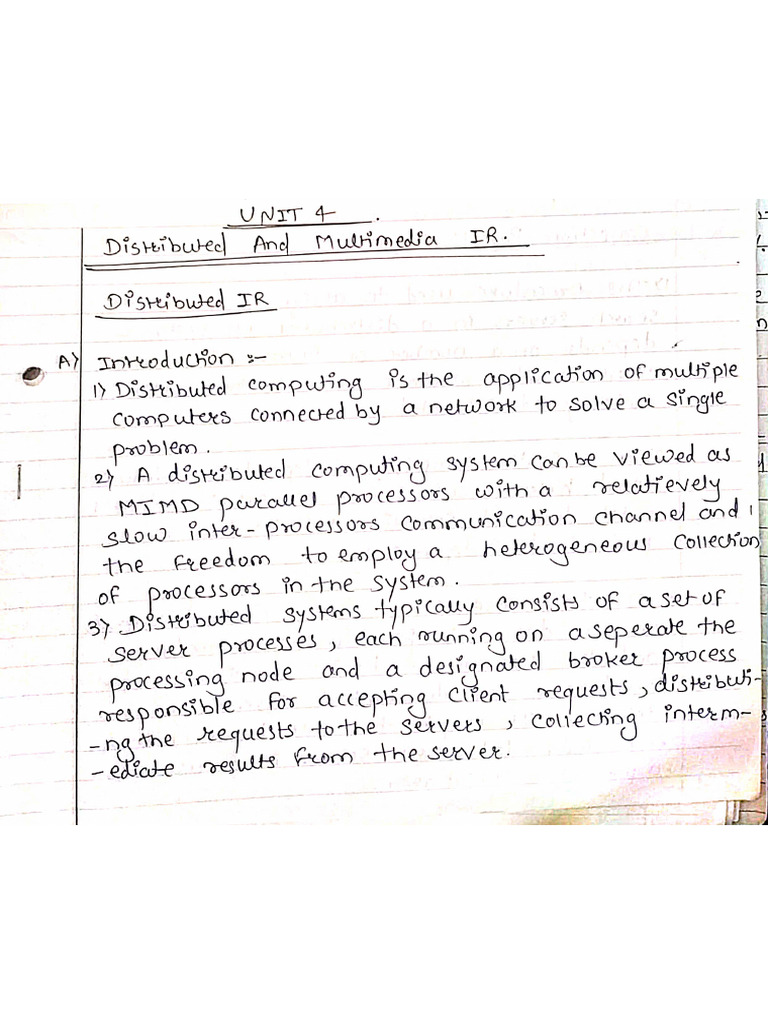 UNIT 4.
Distributed And Multimedia IR.
Distributed IR
A) Introduction :-
1) Distributed computing is the application of multiple
computers connected by a network to solve a single
problem.
2) A distributed computing system can be viewed as
MIMD parallel processors with a relatievely
slow inter-processors communication channel and
the freedom to employ a heterogeneous collection
of processors in the system.
3) Distributed systems typically consists of a set of
server processes, each running on a seperate the
processing node and a designated broker process
responsible for accepting client requests, distributi-
-ng the requests to the servers, collecting interm-
-ediate results from the server.